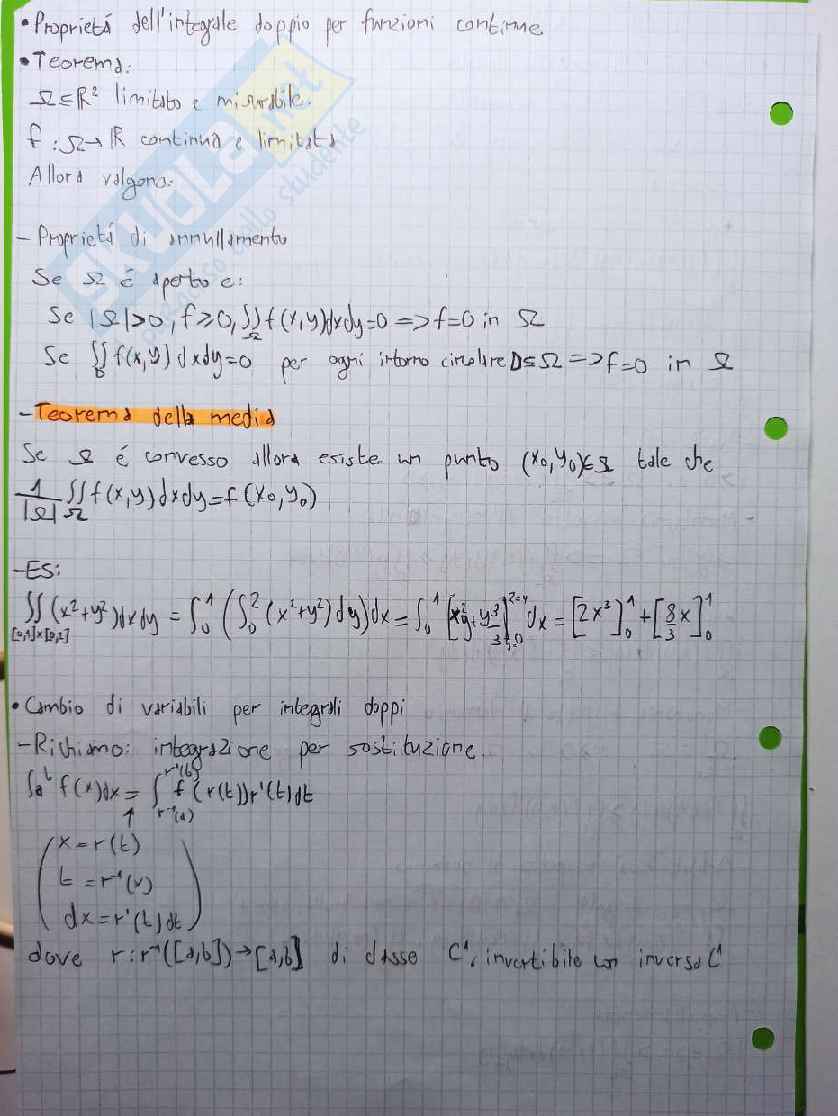 • Proprietá dell'integrale doppio per funzioni continue
• Teorema:
Ω⊆R² limitato e misurabile.
f:Ω→R continua e limitata
Allora valgono:
- Proprietá di annullamento
Se Ω é aperto e:
Se |Ω|>0, f≥0, ∬_Ω f(x,y)dxdy=0 => f=0 in Ω
Se ∬_D f(x,y)dxdy=0 per ogni intorno circolare D⊆Ω => f=0 in Ω
- Teorema della media
Se Ω é convesso allora esiste un punto (x₀,y₀)∈Ω tale che
1/|Ω| ∬_Ω f(x,y)dxdy=f(x₀,y₀)
- ES:
∬_{[0,1]×[0,2]} (x²+y²)dxdy = ∫₀¹(∫₀²(x²+y²)dy)dx = ∫₀¹[x²y+y³/3]dx = [2x³]₀¹+[8/3 x]₀¹
• Cambio di variabili per integrali doppi
- Richiamo: integrazione per sostituzione.
∫ₐᵇ f(x)dx = ∫_{r⁻¹(a)}^{r⁻¹(b)} f(r(t))r'(t)dt
(x=r(t)
t=r⁻¹(x)
dx=r'(t)dt)
dove r:r⁻¹([a,b])→[a,b] di classe C¹, invertibile con inversa C¹
skuola.net
appunti dello studente